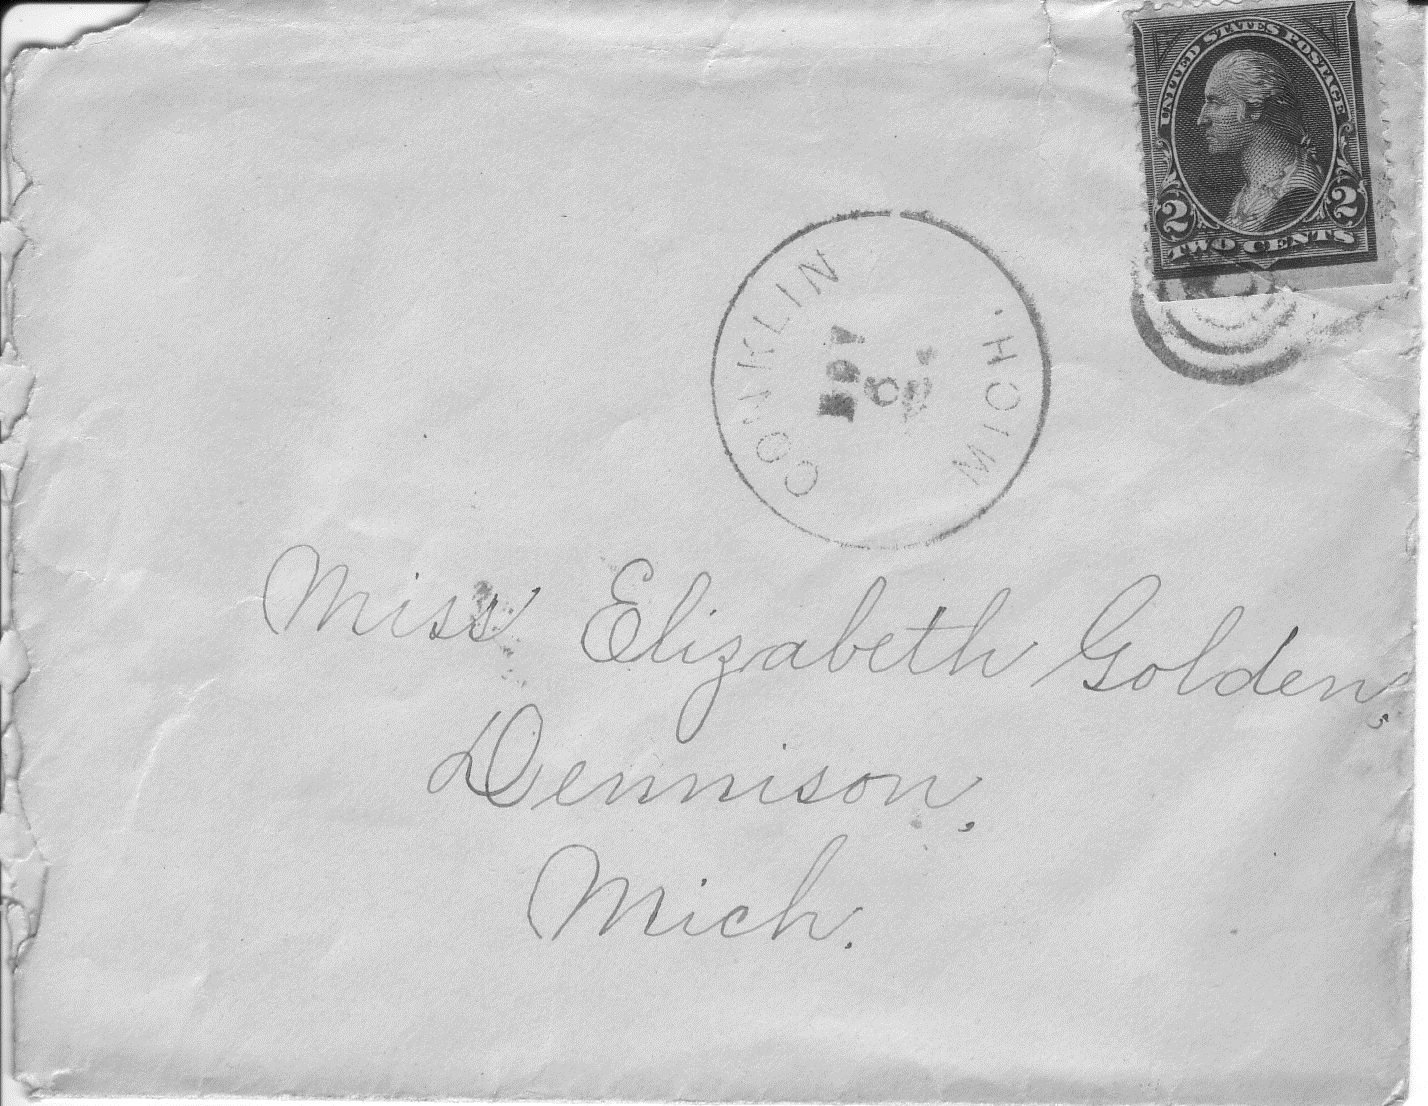 UNITED STATES POSTAGE
2 2
TWO CENTS
CONKLIN
MICH.
Miss Elizabeth Golden,
Dennison,
Mich.